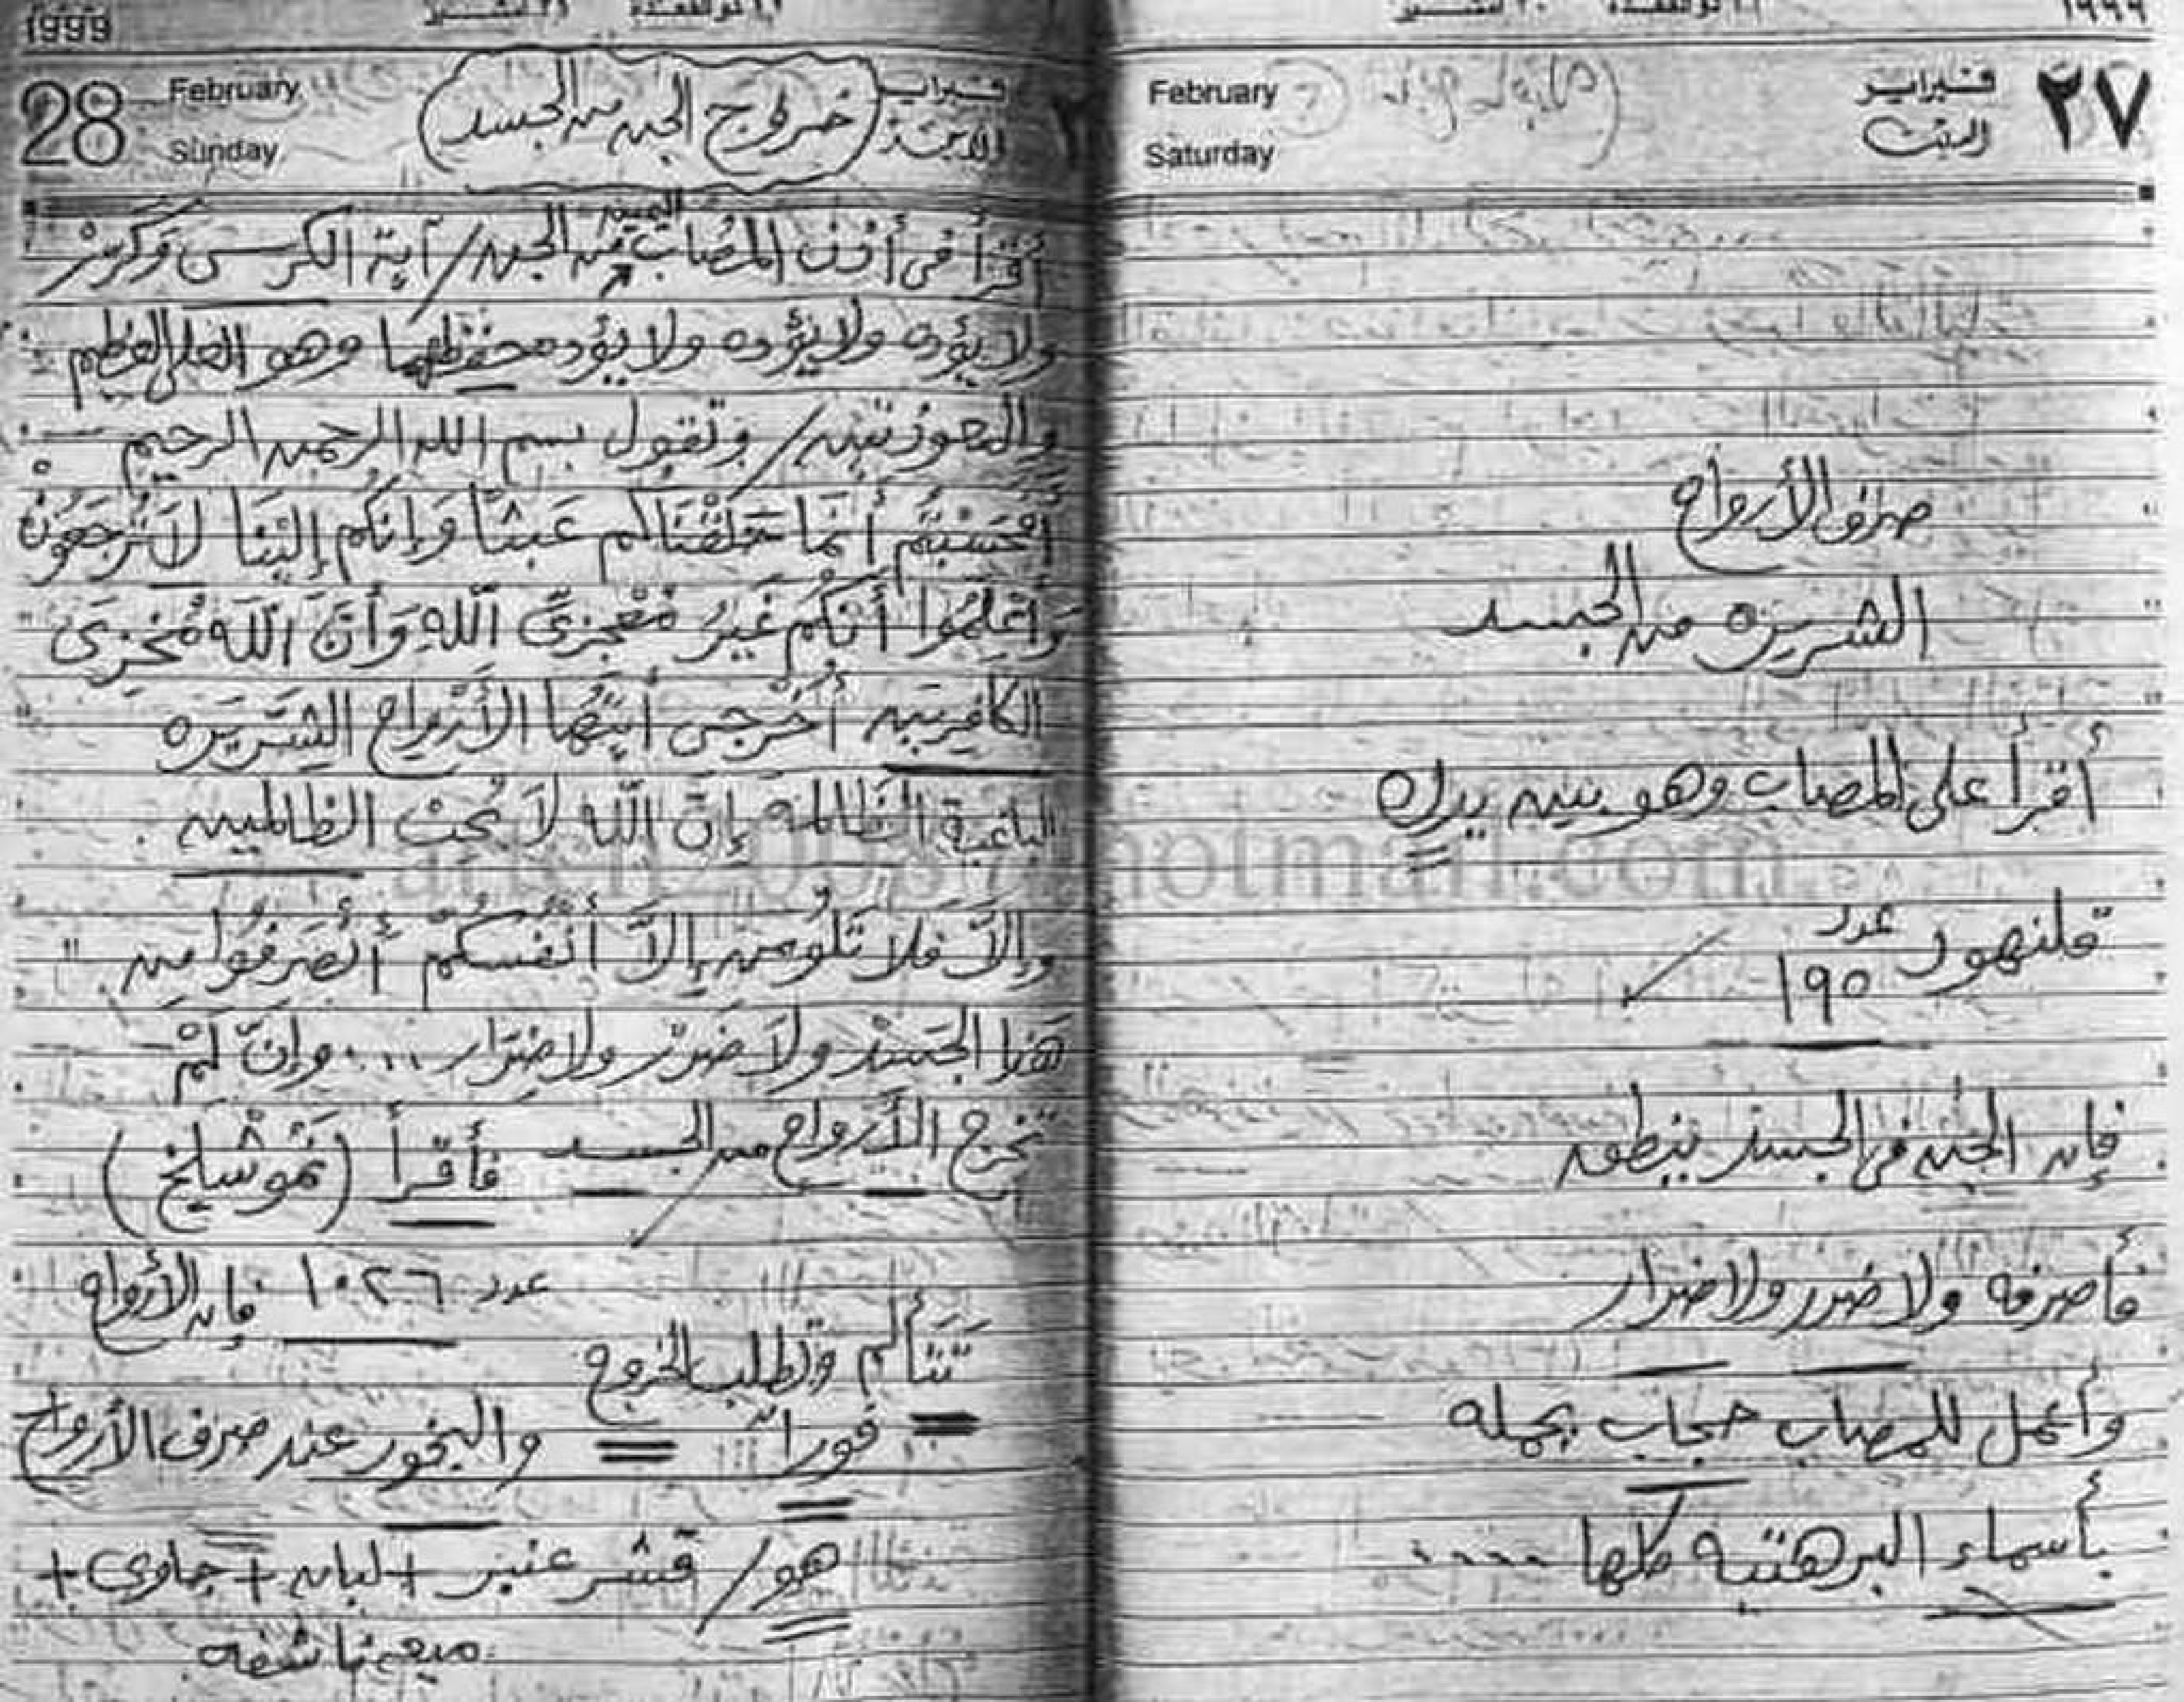 ١٩٩٩
٢٧
فبراير
السبت
February
Saturday
صرف الأرواح
الشريره من الجسد
أقرأ على المصاب وهو بين يديك
قلنهود عدد
١٩٥
فإن الجن في الجسد ينطق
فأصرفه ولا ضرر ولا ضرار
وأعمل للمصاب حجاب يحمله
بأسماء البرهتيه كلها
1999
28
February
Sunday
فبراير
الأحد
خروج الجن من الجسد
أقرأ في أذن المصاب اليمين من الجن / آية الكرسي وكرر
ولا يؤده ولا يؤده ولا يؤده حفظهما وهو العلي العظيم
والمعوذتين / وتقول بسم الله الرحمن الرحيم
أَفَحَسِبْتُم أَنَّمَا خَلَقْنَاكُم عَبَثًا وَإِنَكُم إِلَيْنَا لاَ تُرْجَعُونْ
وَأعْلَمُوا أَنَكُم غَيرُ مُعْجِزِيَّ اللّهِ وَأَنَّ اللّهَ مُخْزِىَ
الكافِرِيَن أُخْرجى أيَتُها الأَرْواحِ الشَرِيَره
الباغية الظَالمة إِنَّ اللّه لاَ يُحِبُ الظالمين
وإلاَّ فلا تَلُومن إلاَّ أنْفُسكُمْ أنْصَرفُوا مِن
هَذا الجَسَدْ ولاَ ضَررْ ولا ضِرَار .... وإِنّ لَمْ
تخرج الأرواح من الجسد فأقرأ (نموشلخ)
عدد ١٠٢٦ فإن الأرواح
تتألم وتطلب الخروج
فوراً = والبخور عند صرف الأرواح
هو / قشر عنبر + لبان + جاوى +
ميعه ناشفه
hotmail.com